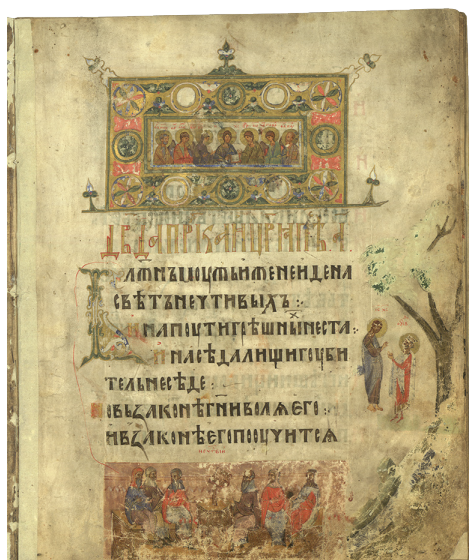 ДВДАПРРКАИЦРѦПѢ А
БЛЖНЪМОУЖЬИЖЕНЕИДЕНА
СВѢТЪНЕЧТИВЫХЪ:·
И НАПОУТИГРѢШНЫХНЕСТА:·
И НАСѢДАЛИЩИГОУБИ
ТЕЛЬНЕСѢДЕ:·
НОВЬЗАКОНѢГНИВОЛѦЕГО:·
ИВЗАКОНѢЕГОПООУЧИТСѦ